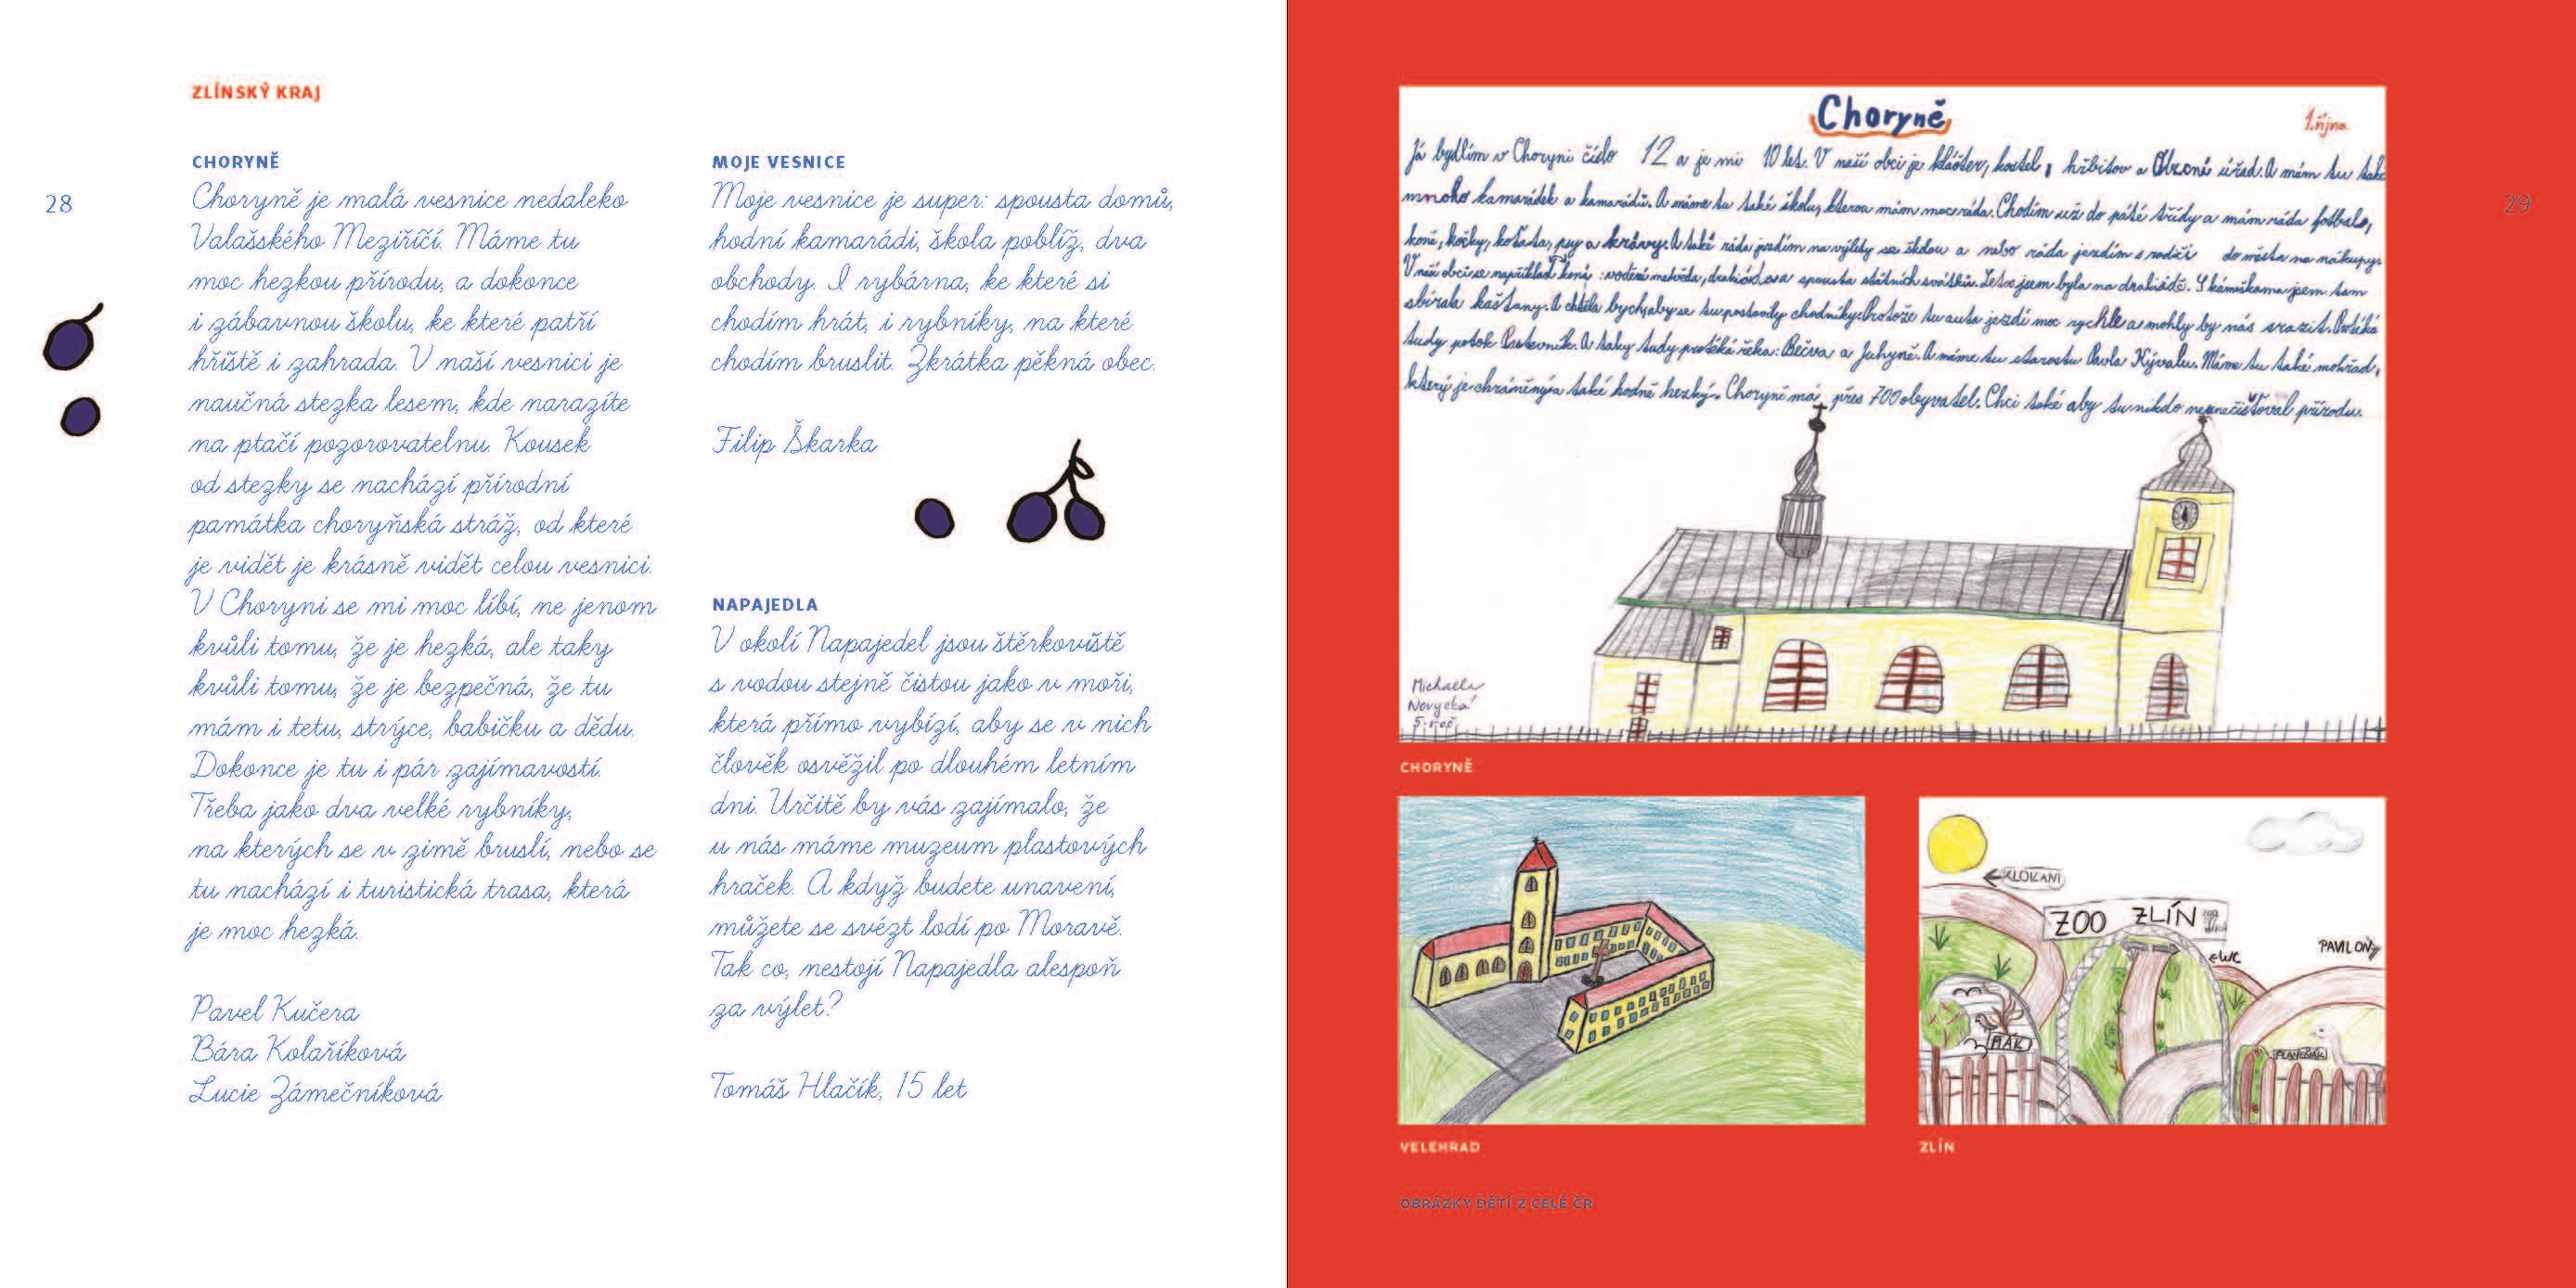 ZLÍNSKÝ KRAJ
28
CHORYNĚ
Choryně je malá vesnice nedaleko
Valašského Meziříčí. Máme tu
moc hezkou přírodu, a dokonce
i zábavnou školu, ke které patří
hřiště i zahrada. V naší vesnici je
naučná stezka lesem, kde narazíte
na ptačí pozorovatelnu. Kousek
od stezky se nachází přírodní
památka choryňská stráž, od které
je vidět je krásně vidět celou vesnici.
V Choryni se mi moc líbí, ne jenom
kvůli tomu, že je hezká, ale taky
kvůli tomu, že je bezpečná, že tu
mám i tetu, strýce, babičku a dědu.
Dokonce je tu i pár zajímavostí.
Třeba jako dva velké rybníky,
na kterých se v zimě bruslí, nebo se
tu nachází i turistická trasa, která
je moc hezká.
Pavel Kučera
Bára Kolaříková
Lucie Zámečníková
MOJE VESNICE
Moje vesnice je super: spousta domů,
hodní kamarádi, škola poblíž, dva
obchody. I rybárna, ke které si
chodím hrát, i rybníky, na které
chodím bruslit. Zkrátka pěkná obec.
Filip Škarka
NAPAJEDLA
V okolí Napajedel jsou štěrkoviště
s vodou stejně čistou jako v moři,
která přímo vybízí, aby se v nich
člověk osvěžil po dlouhém letním
dni. Určitě by vás zajímalo, že
u nás máme muzeum plastových
hraček. A když budete unavení,
můžete se svézt lodí po Moravě.
Tak co, nestojí Napajedla alespoň
za výlet?
Tomáš Hlačík, 15 let
29
Choryně
1. října
Já bydlím v Choryni číslo 12 a je mi 10 let. V naší obci je klášter, kostel, hřbitov a Obecní úřad. A mám tu také
mnoho kamarádek a kamarádů. A máme tu také školu, kterou mám moc ráda. Chodím už do páté třídy a mám ráda fotbal,
koně, kočky, koťata, psy a krávy. A také ráda jezdím na výlety se školou a nebo ráda jezdím s rodiči do města na nákupy.
V naší obci se například koná: vodění medvěda, drakiáda a spousta státních svátků. Letos jsem byla na drakiádě. S kamoškama jsem tam
sbírala kaštany. A chtěla bych, aby se tu postavily chodníky. Protože tu auta jezdí moc rychle a mohly by nás srazit. Protéká
tudy potok Pastevník. A taky tudy protéká řeka: Bečva a Juhyně. A máme tu starostu Pavla Kývalu. Máme tu také mokřad,
který je chráněný a také hodně hezký. Choryně má přes 700 obyvatel. Chci také aby tu nikdo neznečišťoval přírodu.
Michaela
Novycká
5. roč.
CHORYNĚ
VELEHRAD
KLOKANI
ZOO ZLÍN
WC
PAVILONY
PLAMEŇÁK
ZLÍN
OBRÁZKY DĚTÍ Z CELÉ ČR